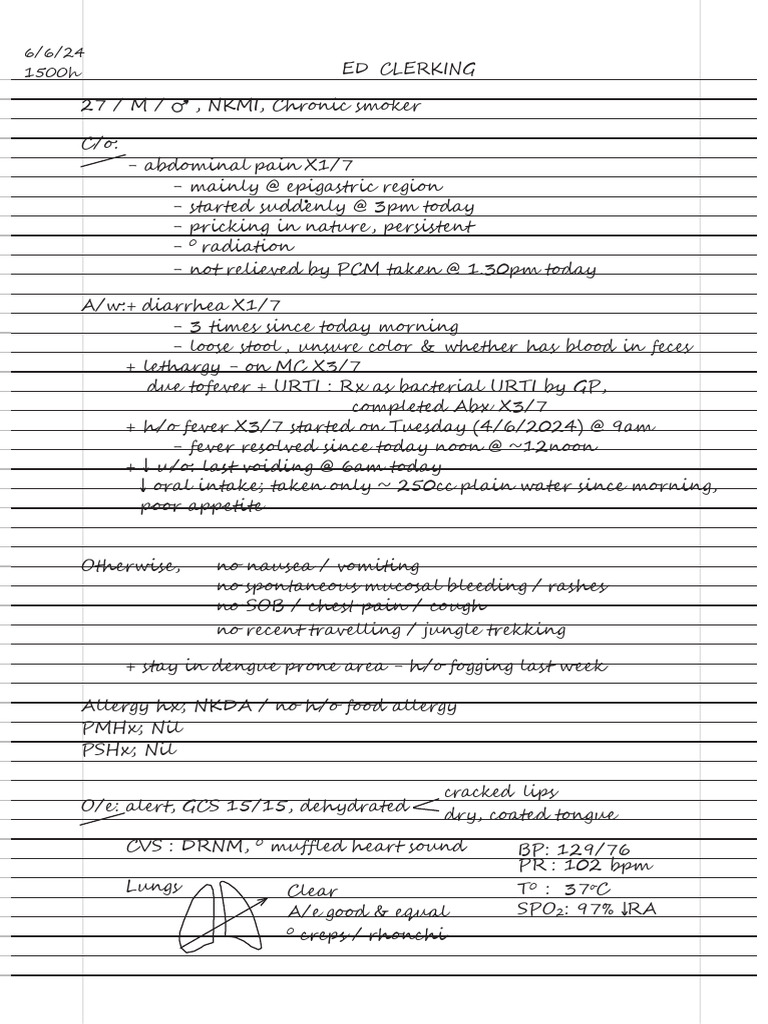 6/6/24
1500h
ED CLERKING
27 / M / ♂ , NKMI, Chronic smoker
C/o:
- abdominal pain X1/7
- mainly @ epigastric region
- started suddenly @ 3pm today
- pricking in nature, persistent
- ° radiation
- not relieved by PCM taken @ 1.30pm today
A/w:+ diarrhea X1/7
- 3 times since today morning
- loose stool , unsure color & whether has blood in feces
+ lethargy - on MC X3/7
due tofever + URTI : Rx as bacterial URTI by GP,
completed Abx X3/7
+ h/o fever X3/7 started on Tuesday (4/6/2024) @ 9am
- fever resolved since today noon @ ~12noon
+ ↓ u/o: last voiding @ 6am today
↓ oral intake; taken only ~ 250cc plain water since morning,
poor appetite
Otherwise, no nausea / vomiting
no spontaneous mucosal bleeding / rashes
no SOB / chest pain / cough
no recent travelling / jungle trekking
+ stay in dengue prone area - h/o fogging last week
Allergy hx; NKDA / no h/o food allergy
PMHx; Nil
PSHx; Nil
O/e: alert, GCS 15/15, dehydrated < cracked lips
dry, coated tongue
CVS : DRNM, ° muffled heart sound
BP: 129/76
PR : 102 bpm
T° : 37°C
SPO₂: 97% ↓RA
Lungs
Clear
A/e good & equal
° creps / rhonchi